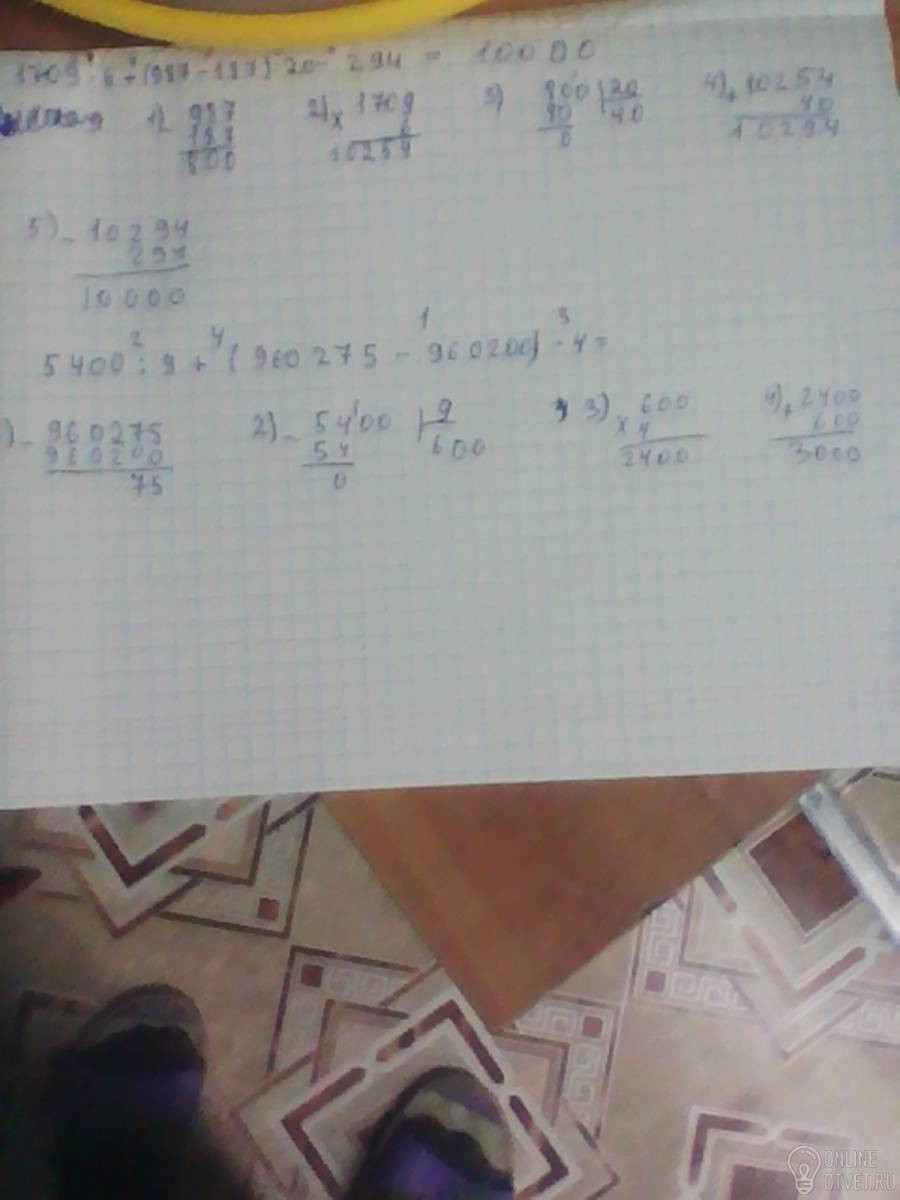 1709 · 6 + (987 - 187) : 20 - 294 = 10000
1) 987 2) × 1709 3) 800 | 20 4) + 10254
187 6 80 40 40
800 10254 0 10294
5) - 10294
294
10000
2 4 1 3
5400 : 9 + (960275 - 960200) · 4 =
) - 960275 2) - 5400 | 9 3) × 600 4) + 2400
960200 54 600 4 600
75 0 2400 3000
ONLINE
OTVET.RU